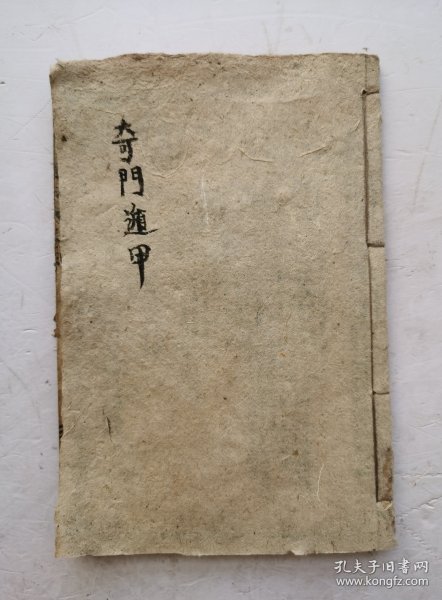 奇門遁甲
孔夫子旧书网
www.kongfz.com